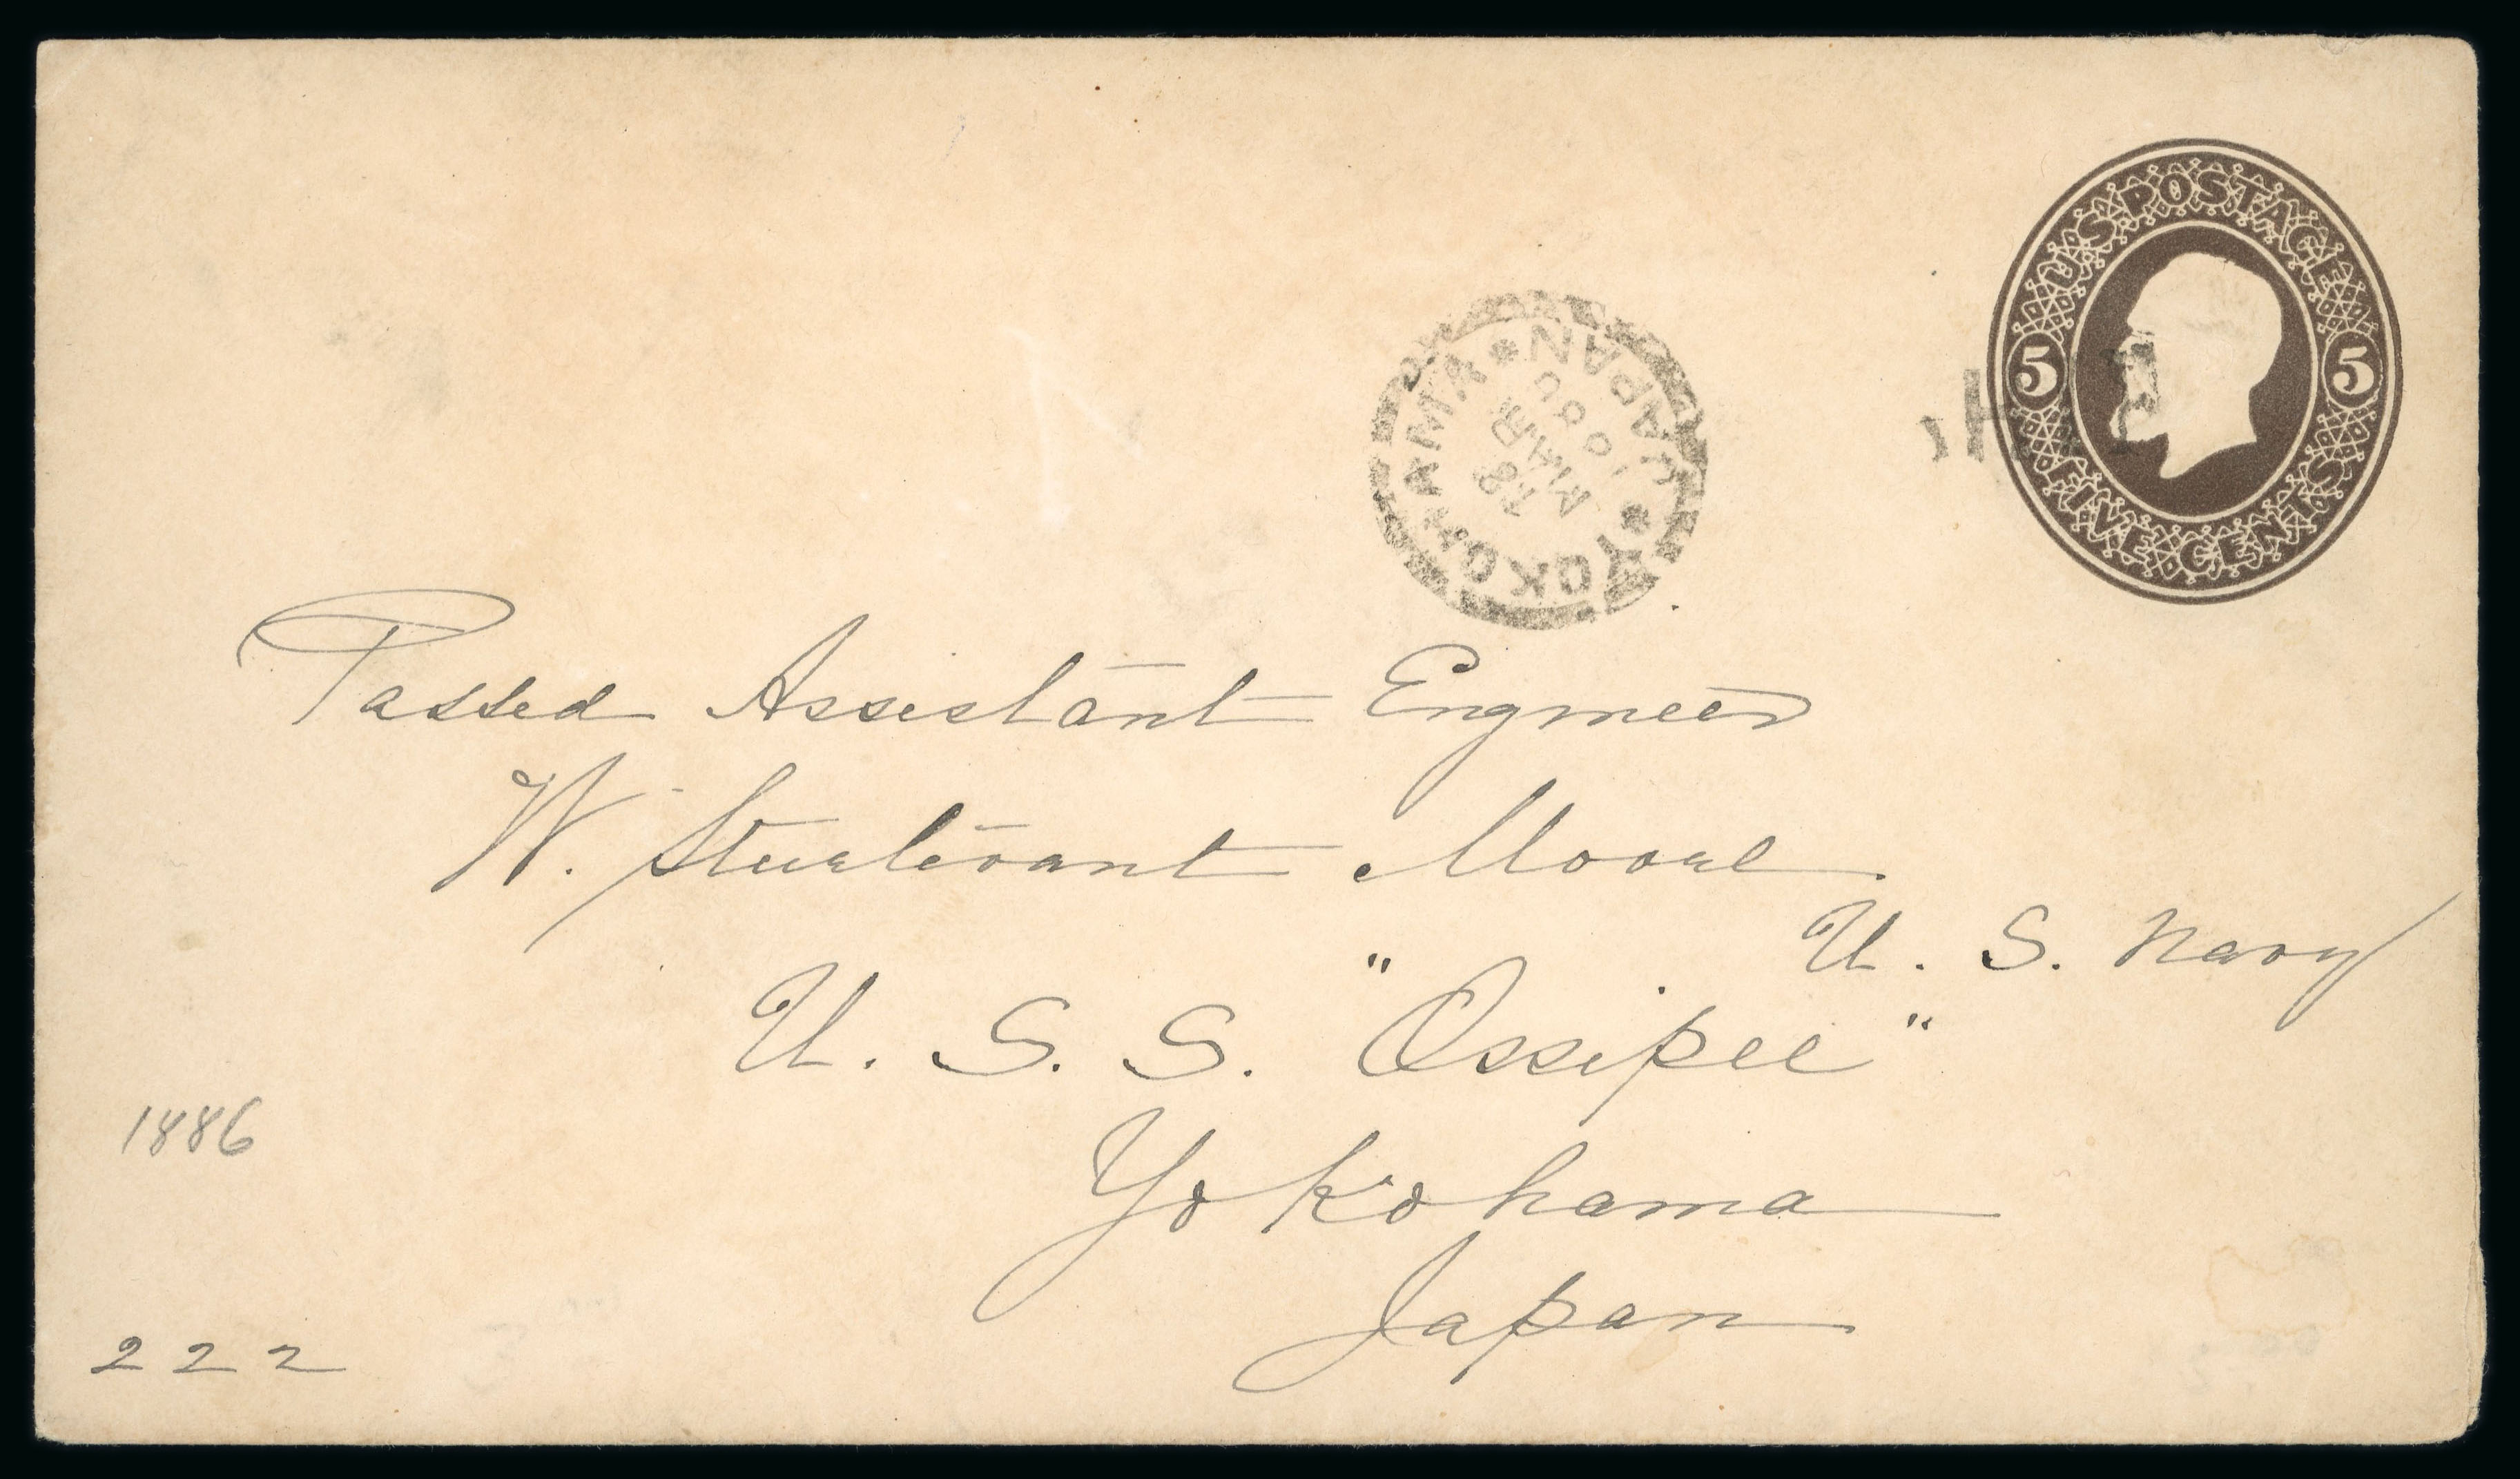 U.S. POSTAGE
5 5
FIVE CENTS
YOKOHAMA * JAPAN *
MAR
Passed Assistant Engineer
W. Sturtevant Moore
U. S. Navy
U. S. S. "Ossipee"
Yokohama
Japan
1886
222